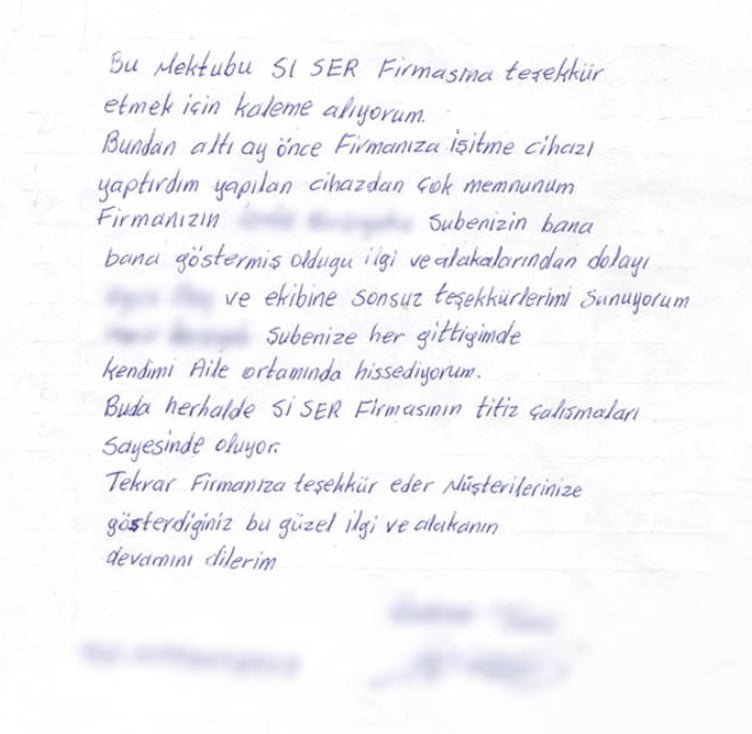 Bu Mektubu SI SER Firmasına teşekkür
etmek için kaleme alıyorum.
Bundan altı ay önce Firmanıza işitme cihazı
yaptırdım yapılan cihazdan çok memnunum
Firmanızın Subenizin bana
bana göstermiş oldugu ilgi ve alakalarından dolayı
ve ekibine sonsuz teşekkürlerimi sunuyorum
Subenize her gittigimde
kendimi Aile ortamında hissediyorum.
Buda herhalde Sİ SER Firmasının titiz çalışmaları
sayesinde oluyor.
Tekrar Firmanıza teşekkür eder Müşterilerinize
gösterdiginiz bu güzel ilgi ve alakanın
devamını dilerim